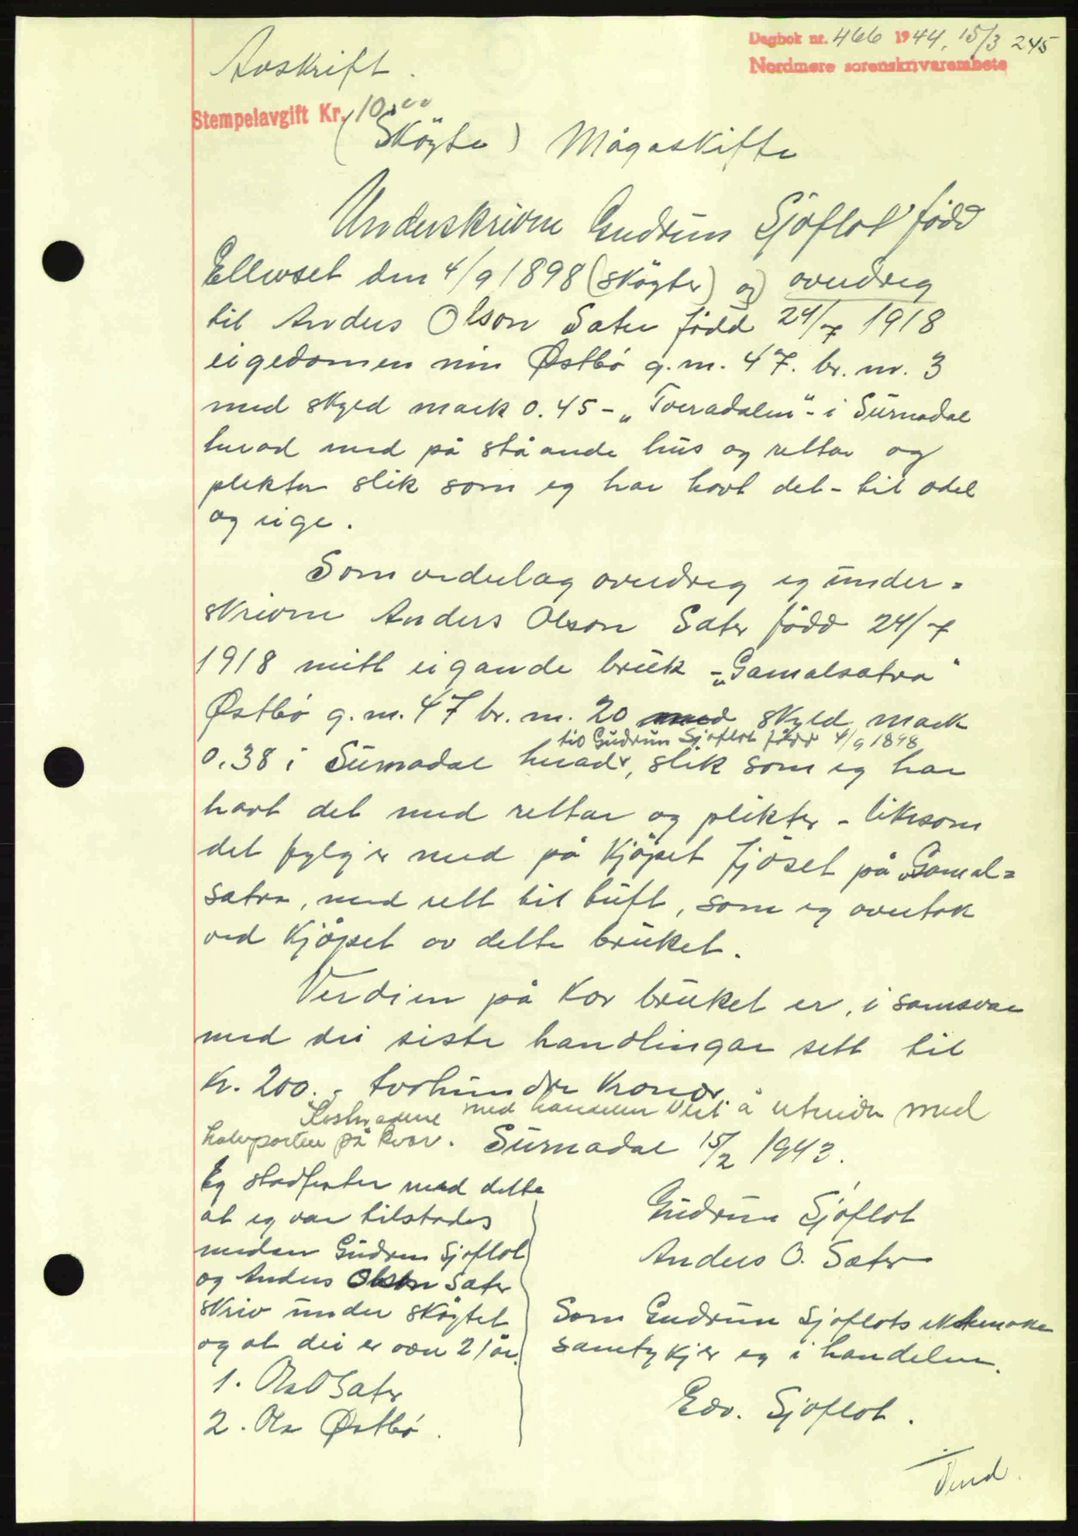 Dagbok nr. 466 1944, 15/3 245
Nordmøre sorenskrivarembete
Avskrift.
Stempelavgift Kr. 10,00
(Skøyte) Mågaskifte
Underskrivne Gudrun Sjøflot født
Ellevset den 4/9 1898 (skøyter) og overdreg
til Anders Olson Sæter født 24/7 1918
eigedomen min Østbø g.nr. 47. br. nr. 3
med skyld mark 0.45 - „Tveradalen" - i Surnadal
herad med på ståande hus og rettar og
plikter slik som eg har havt det - til odel
og eige.
Som vederlag overdreg eg under=
skrivne Anders Olson Sæter fødd 24/7
1918 mitt eigande bruk - „Gamalsætra"
Østbø g.nr. 47 br. nr. 20 med skyld mark
til Gudrun Sjøflot født 4/9 1898
0.38 i Surnadal herad, slik som eg har
havt det med rettar og plikter - liksom
det fylgjer med på kjøpet fjøset på „Gamal=
sætra, med rett til tuft, som eg overtok
ved kjøpet av dette bruket.
Verdien på kvar bruket er, i samsvar
med dei siste handlingar sett til
Kr. 200. - tvohundre kroner
Kostnadene med handelen vert å utreida med
halvparten på kvar. Surnadal 15/2 1943.
Eg stadfester med dette
at eg var tilstades
medan Gudrun Sjøflot
og Anders Olson Sæter
skriv under skøytet
og at dei er over 21 år.
1. Ola O Sæter
2. Ola Østbø.
Gudrun Sjøflot
Anders O. Sæter
Som Gudrun Sjøflots ektemake
samtykkjer eg i handelen.
Edv. Sjøflot.
Vend.